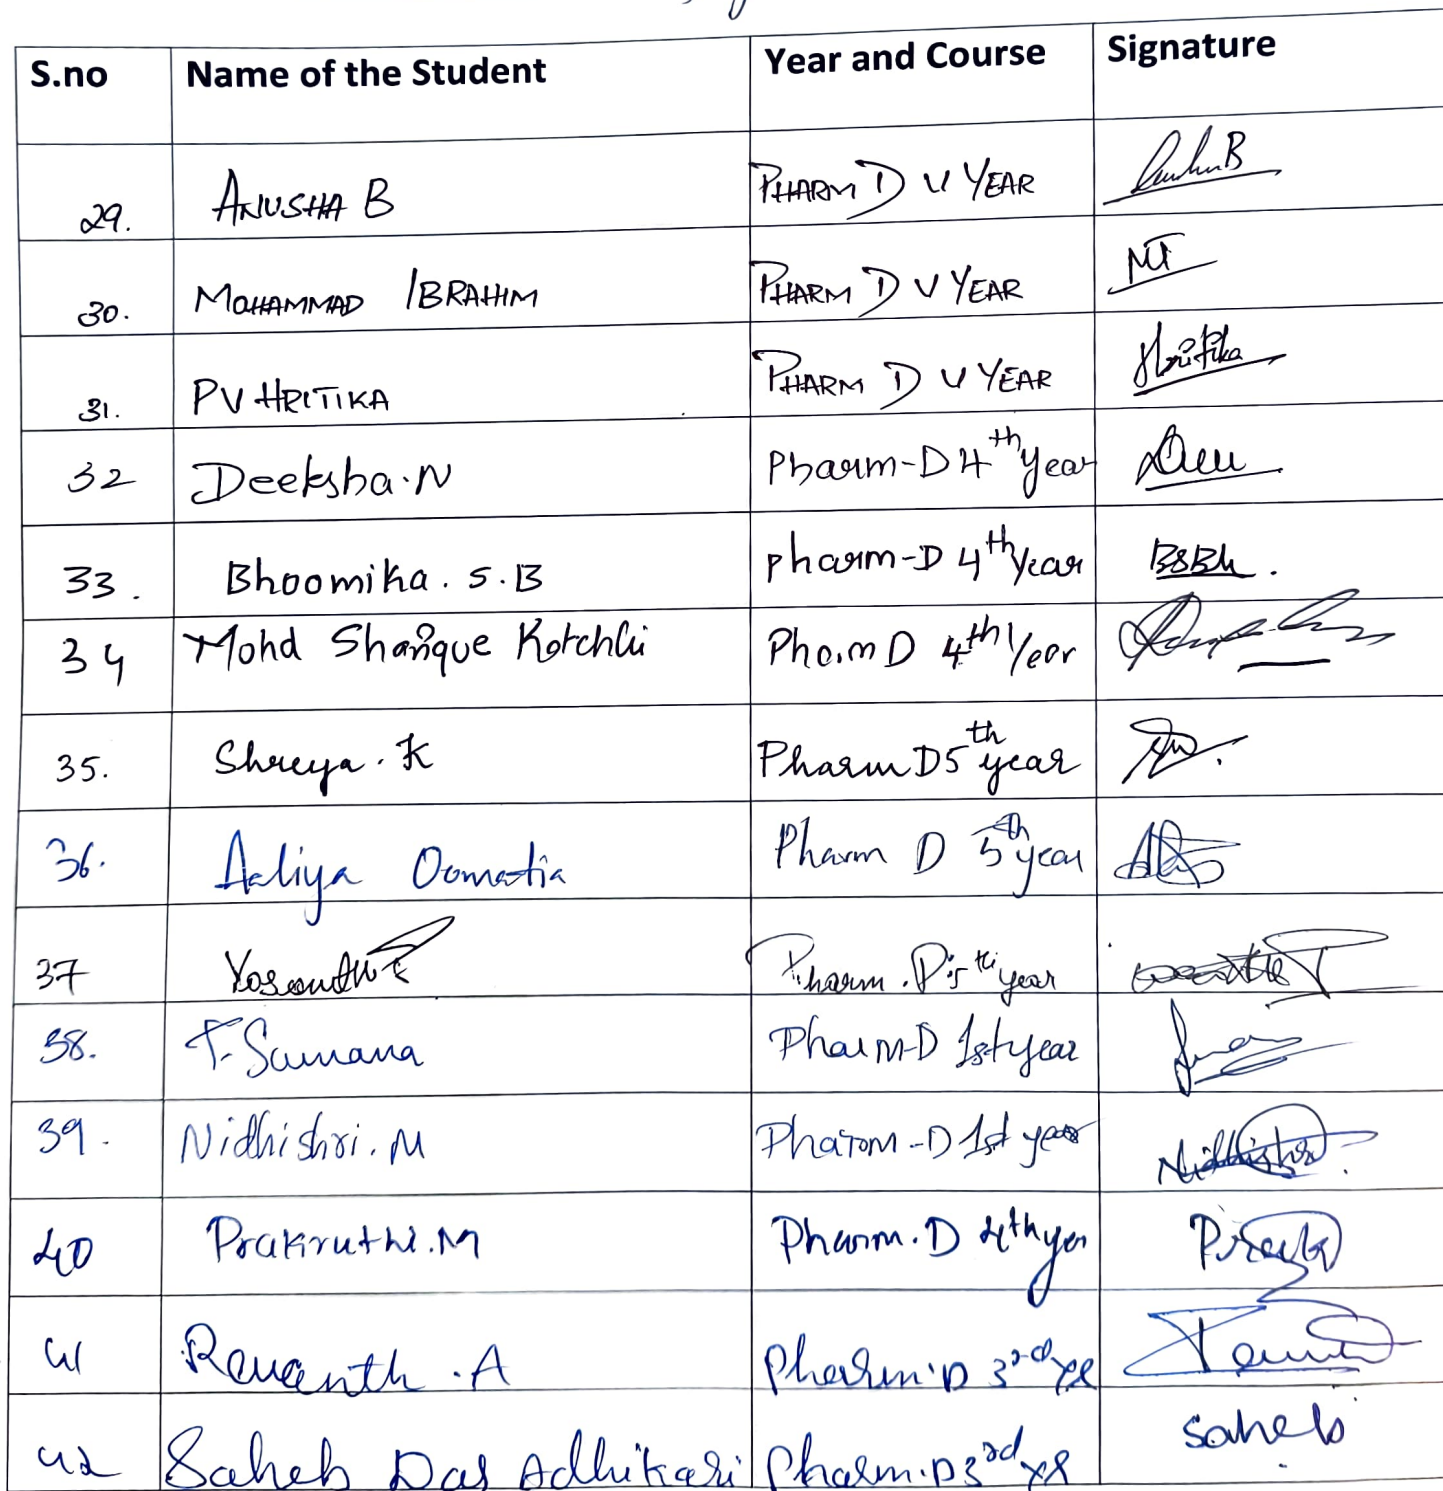 S.no Name of the Student Year and Course Signature
29. ANUSHA B PHARM D V YEAR
30. MOHAMMAD IBRAHIM PHARM D V YEAR
31. PV HRITIKA PHARM D V YEAR Hritika
32 Deeksha.N Pharm-D 4th year
33. Bhoomika. S.B pharm-D 4th Year
34 Mohd Sharique Kotchli Pharm D 4th Year
35. Shreya. K Pharm D 5th year
36. Aaliya Oomatia Pharm D 5th year
37 Pharm.D 5th year
38. T. Sumana Pharm-D 1st year
39. Nidhishri. M Pharm-D 1st year Nidhishri
40 Prakruthi.M Pharm.D 4th year
41 Revanth.A Pharm.D 3rd yr
42 Saheb Das Adhikari Pharm.D 3rd yr Saheb